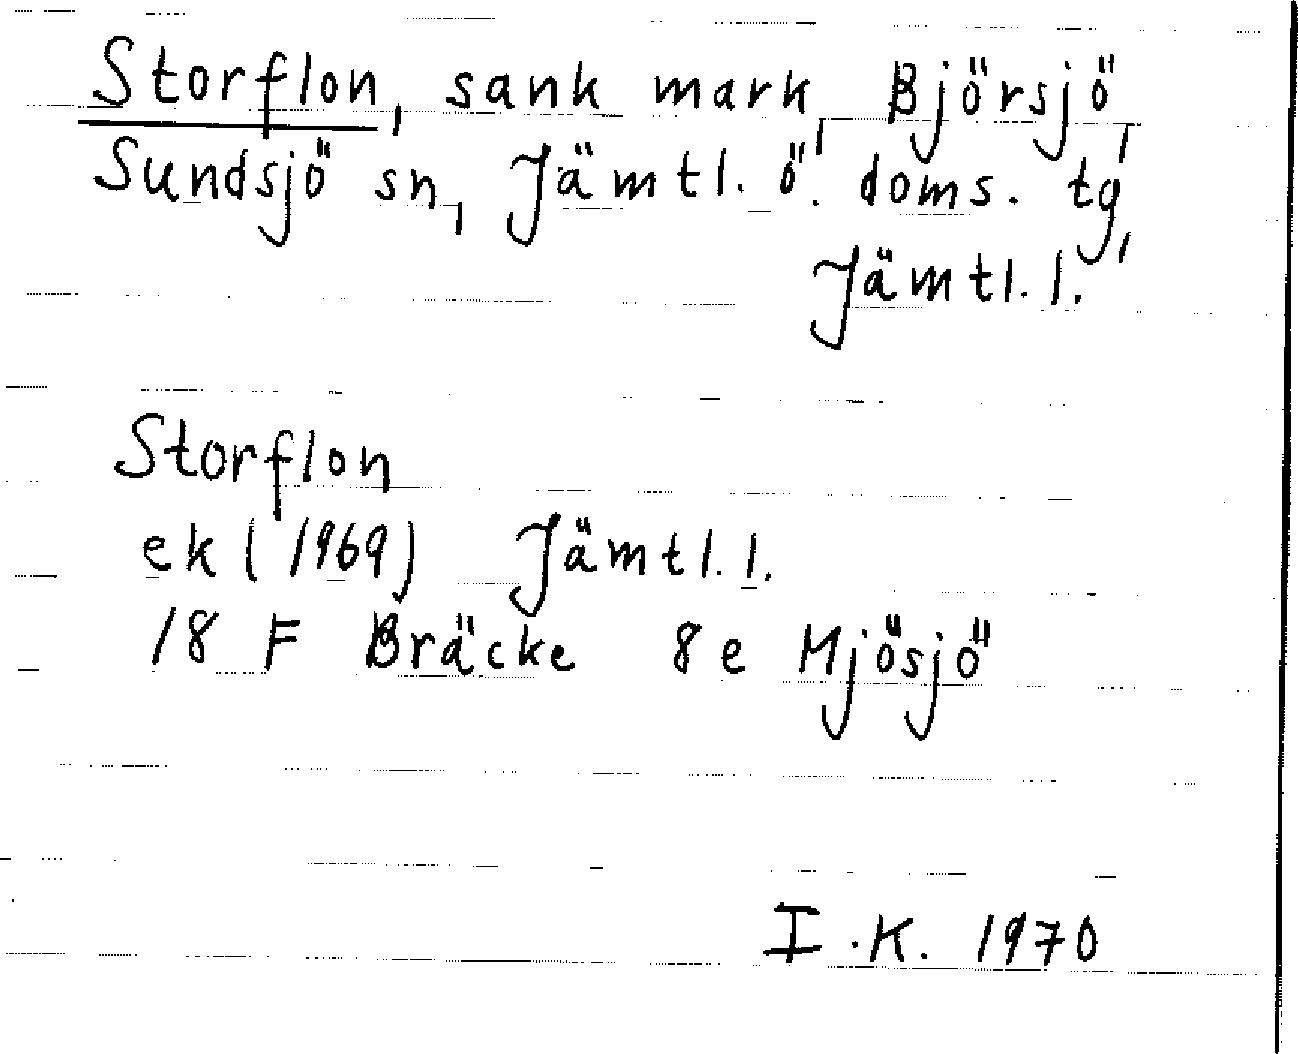 Storflon, sank mark, Björsjö,
Sundsjö sn, Jämtl. ö. doms. tg,
Jämtl. l.
Storflon
ek (1969) Jämtl. l.
18 F Bräcke 8 e Mjösjö
I.K. 1970